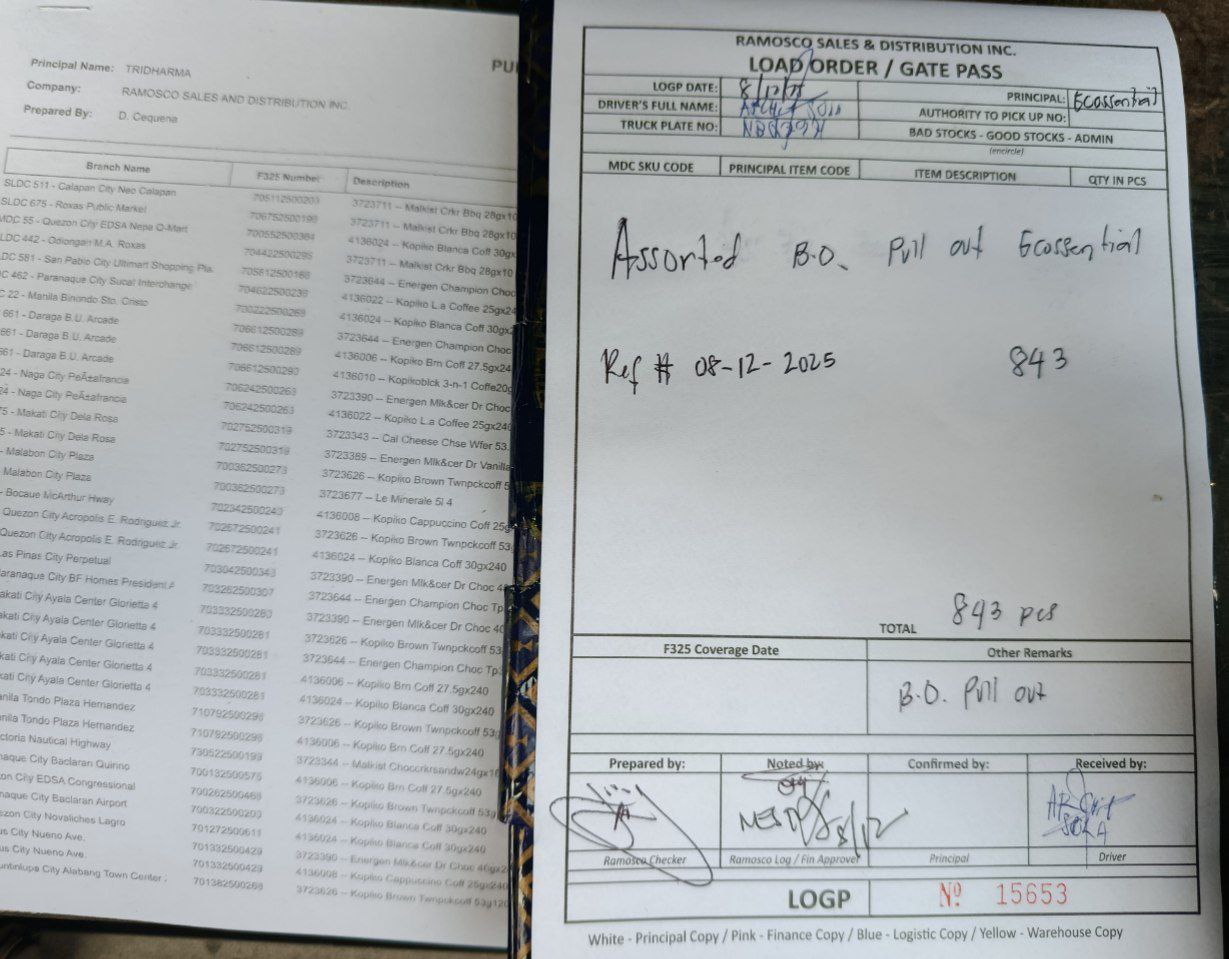 Principal Name: TRIDHARMA
Company: RAMOSCO SALES AND DISTRIBUTION INC.
Prepared By: D. Cequena
Branch Name F325 Number Description
SLDC 511 - Calapan City Neo Calapan 705112500203 3723711 -- Malkist Crkr Bbq 28gx10
SLDC 675 - Roxas Public Market 706752500190 3723711 -- Malkist Crkr Bbq 28gx10
MDC 55 - Quezon City EDSA Nepa Q-Mart 700552500364 4136024 -- Kopiko Blanca Coff 30gx
LDC 442 - Odiongan M.A. Roxas 704422500295 3723711 -- Malkist Crkr Bbq 28gx10
DC 581 - San Pablo City Ultimart Shopping Pla. 705812500166 3723644 -- Energen Champion Choc
C 462 - Paranaque City Sucat Interchange 704622500236 4136022 -- Kopiko L.a Coffee 25gx24
C 22 - Manila Binondo Sto. Cristo 700222500268 4136024 -- Kopiko Blanca Coff 30gx2
661 - Daraga B.U. Arcade 706612500289 3723644 -- Energen Champion Choc
661 - Daraga B.U. Arcade 706612500289 4136006 -- Kopiko Brn Coff 27.5gx240
661 - Daraga B.U. Arcade 706612500290 4136010 -- Kopikoblck 3-n-1 Coffe20g
24 - Naga City PeÃ±afrancia 706242500263 3723390 -- Energen Mlk&cer Dr Choc
24 - Naga City PeÃ±afrancia 706242500263 4136022 -- Kopiko L.a Coffee 25gx240
75 - Makati City Dela Rosa 702752500319 3723343 -- Cal Cheese Chse Wfer 53.
5 - Makati City Dela Rosa 702752500319 3723389 -- Energen Mlk&cer Dr Vanilla
- Malabon City Plaza 700362500273 3723626 -- Kopiko Brown Twnpckcoff 5
Malabon City Plaza 700362500273 3723677 -- Le Minerale 5l 4
- Bocaue McArthur Hway 702342500243 4136008 -- Kopiko Cappuccino Coff 25g
Quezon City Acropolis E. Rodriguez Jr. 702672500241 3723626 -- Kopiko Brown Twnpckcoff 53
Quezon City Acropolis E. Rodriguez Jr. 702672500241 4136024 -- Kopiko Blanca Coff 30gx240
Las Pinas City Perpetual 703042500343 3723390 -- Energen Mlk&cer Dr Choc 4
aranaque City BF Homes President A 703262500307 3723644 -- Energen Champion Choc Tp
akati City Ayala Center Glorietta 4 703332500280 3723390 -- Energen Mlk&cer Dr Choc 40
akati City Ayala Center Glorietta 4 703332500281 3723626 -- Kopiko Brown Twnpckcoff 53
kati City Ayala Center Glorietta 4 703332500281 3723644 -- Energen Champion Choc Tp3
kati City Ayala Center Glorietta 4 703332500281 4136006 -- Kopiko Brn Coff 27.5gx240
anila Tondo Plaza Hernandez 710792500296 4136024 -- Kopiko Blanca Coff 30gx240
nila Tondo Plaza Hernandez 710792500296 3723626 -- Kopiko Brown Twnpckcoff 53g
ctoria Nautical Highway 730522500199 4136006 -- Kopiko Brn Coff 27.5gx240
naque City Baclaran Quirino 700132500575 3723344 -- Malkist Choccrkrsandw24gx10
zon City EDSA Congressional 700262500468 4136006 -- Kopiko Brn Coff 27.5gx240
naque City Baclaran Airport 700322500203 3723626 -- Kopiko Brown Twnpckcoff 53g
ezon City Novaliches Lagro 701272500611 4136024 -- Kopiko Blanca Coff 30gx240
us City Nueno Ave. 701332500429 4136024 -- Kopiko Blanca Coff 30gx240
us City Nueno Ave. 701332500429 3723390 -- Energen Mlk&cer Dr Choc 40gx2
untinlupa City Alabang Town Center . 701382500268 4136008 -- Kopiko Cappuccino Coff 25gx240
3723626 -- Kopiko Brown Twnpckcoff 53g120
RAMOSCO SALES & DISTRIBUTION INC.
LOAD ORDER / GATE PASS
LOGP DATE: 8/12/25 PRINCIPAL: Ecossential
DRIVER'S FULL NAME: AUTHORITY TO PICK UP NO:
TRUCK PLATE NO: BAD STOCKS - GOOD STOCKS - ADMIN
(encircle)
MDC SKU CODE PRINCIPAL ITEM CODE ITEM DESCRIPTION QTY IN PCS
Assorted B.O. Pull out Ecossential
Ref # 08-12-2025 843
TOTAL 843 pcs
F325 Coverage Date Other Remarks
B.O. Pull out
Prepared by: Noted by: Confirmed by: Received by:
8/12
Ramosco Checker Ramosco Log / Fin Approver Principal Driver
LOGP Nº 15653
White - Principal Copy / Pink - Finance Copy / Blue - Logistic Copy / Yellow - Warehouse Copy